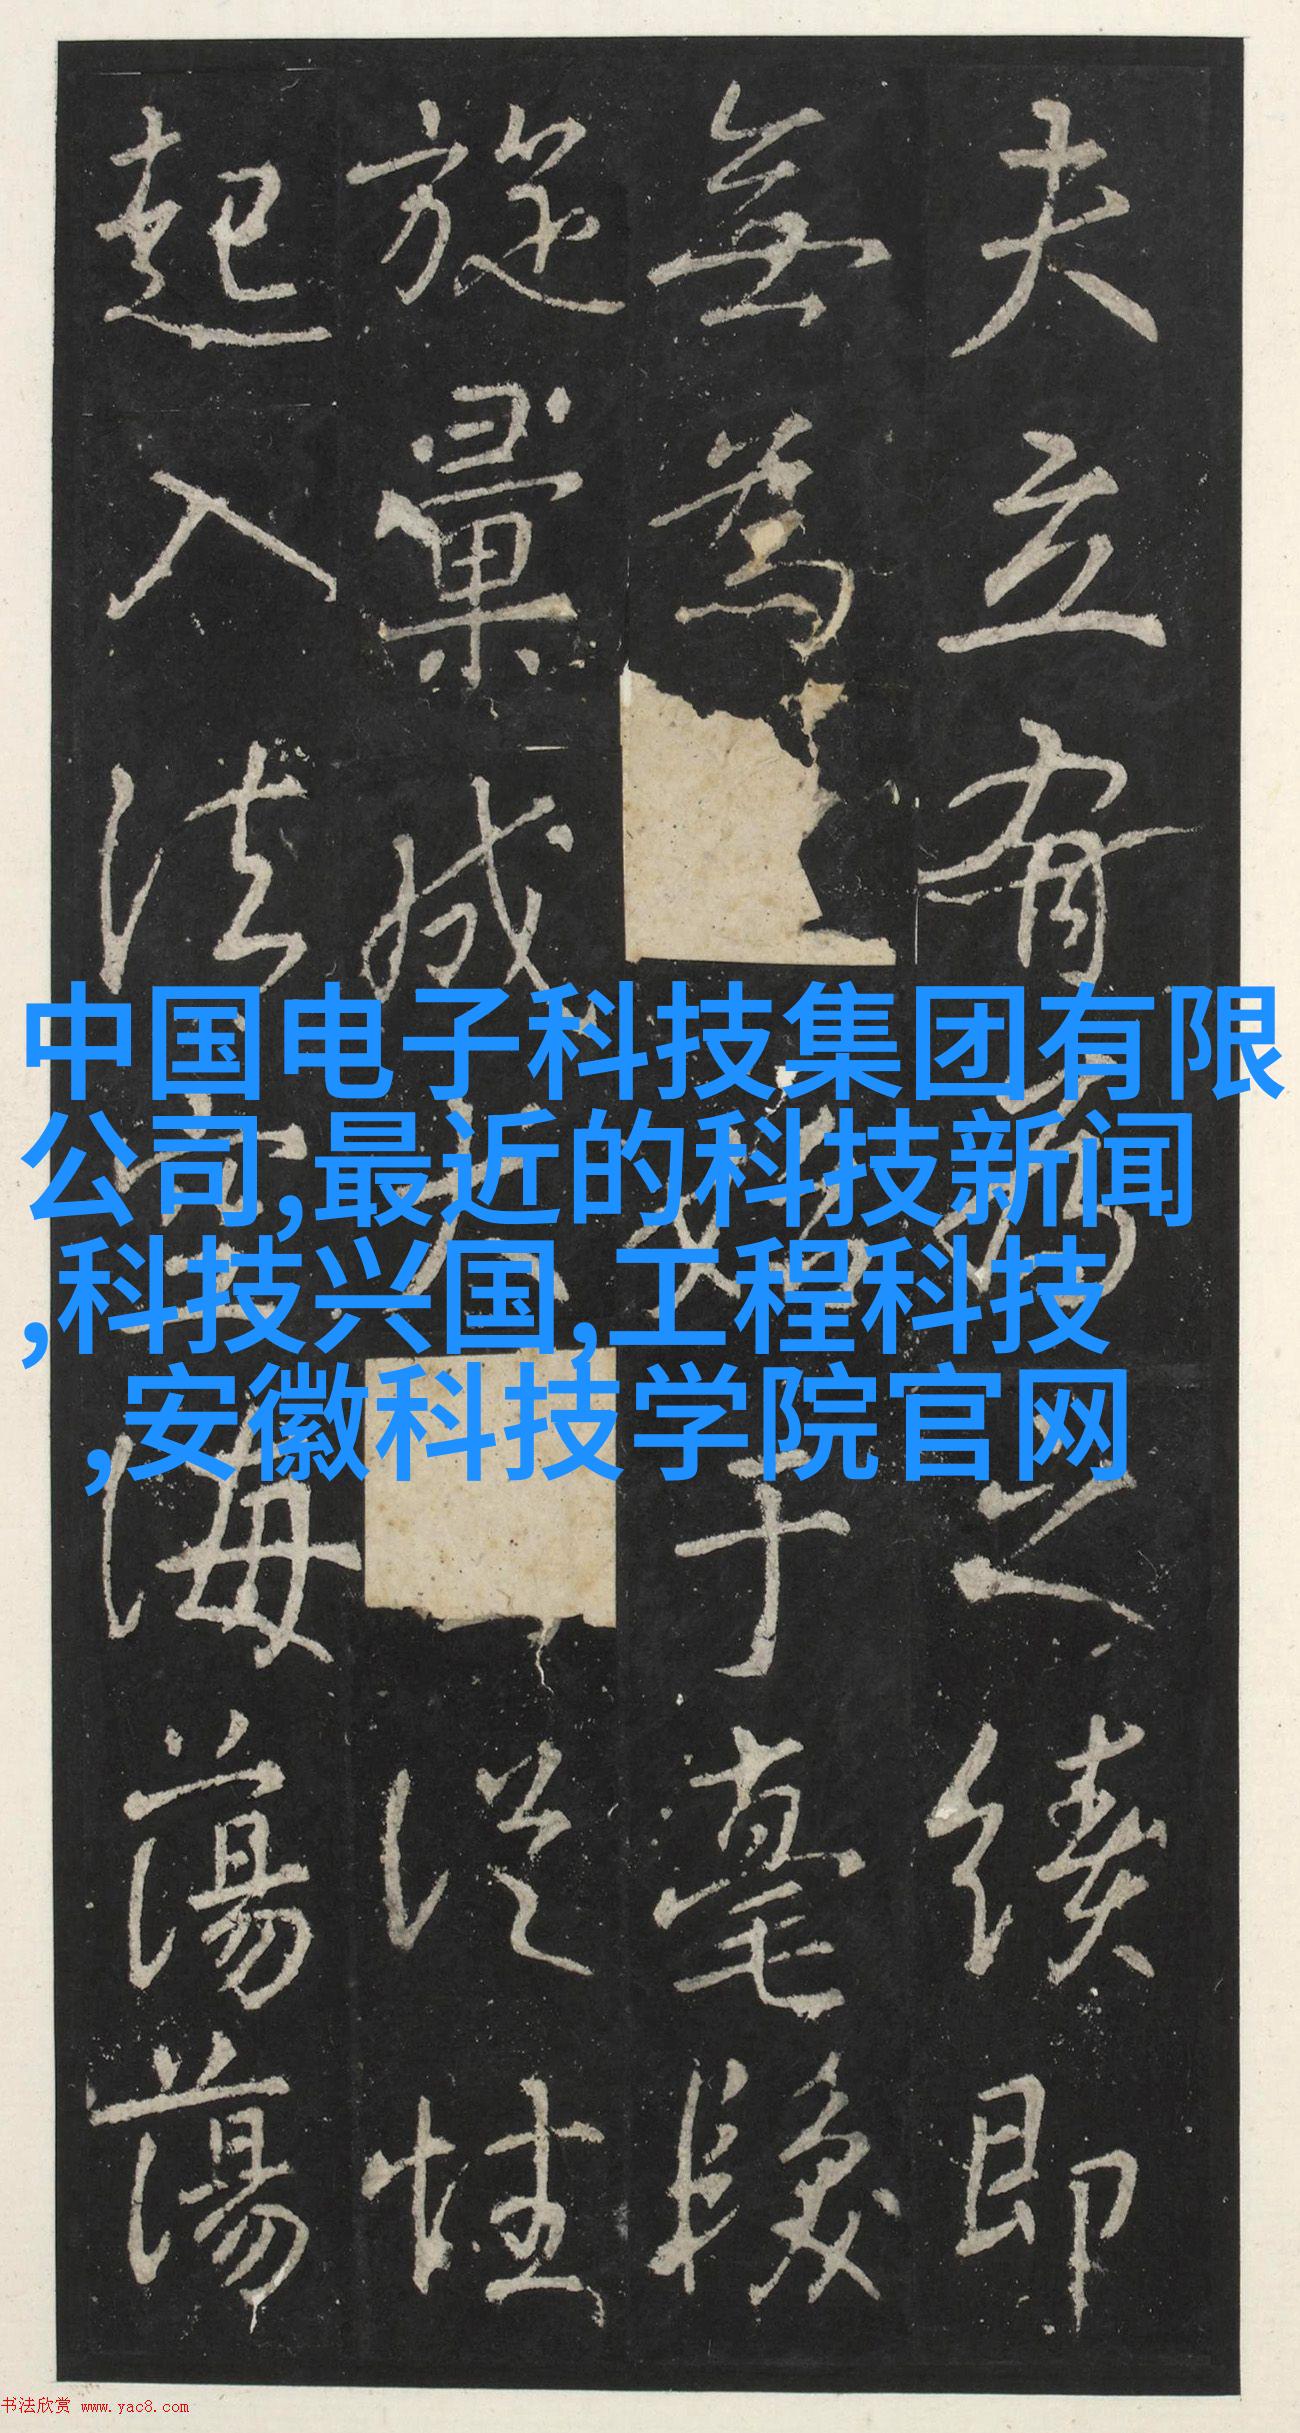 夫立有為之續即
無為于毫
旋彙成從性
起入法海蕩蕩
中国电子科技集团有限
公司,最近的科技新闻
,科技兴国,工程科技
,安徽科技学院官网
书法欣赏 www.yac8.com